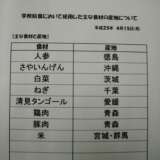 学校給食において使用した主な食材の産地について
平成25年 4月15日(月)
【主な食材と産地】
食材 産地
人参 徳島
さやいんげん 沖縄
白菜 茨城
ねぎ 千葉
清見タンゴール 愛媛
鶏肉 青森
豚肉 青森
米 宮城・群馬